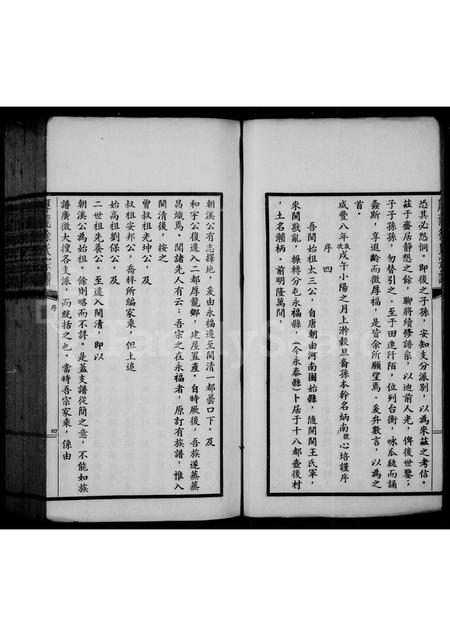 恐其必然倘。即後之子孫，安知支分派別，以為來茲之考信。
茲于齋居靜憩之餘，聊將續修譜系，以迪前人光，俾後世鑒；
子子孫孫，勿替引之，至于田連阡陌，位列台衡，咏瓜瓞而誦
螽斯，享遐齡而徵厚福，是皆余所願望焉。爰弁數言，以為之
首。
咸豐八年歲次戊午小陽之月上澣穀旦裔孫本幹名炳南號心培謹序
序四
吾閩始祖太三公，自唐朝由河南固始縣，隨閩王氏軍，
來閩戡亂，輾轉分屯永福縣，（今永泰縣）卜居于十八都壺後村
，土名瀨柄。前明隆萬間，
朝漢公有志擇地，爰由永福遷至閩清一都雲口下，及
和宇公復遷入二都厚龍鄉，建屋置產。自時厥後，吾族遂蒸蒸
昌熾焉。聞諸先人有云：吾宗之在永福者，原訂有族譜，惟入
閩清後，按之
曾叔祖光坤公，及
叔祖安邦公，喬梓所編家乘，但上追
始高祖劉保公，及
二世祖先養公，至遷入閩清，即以
朝漢公為始祖。餘則略而不詳。是蓋支譜從簡之意，不能如族
譜廣徵大搜各支派，而統括之也。當時吾宗家乘，係由
序
四